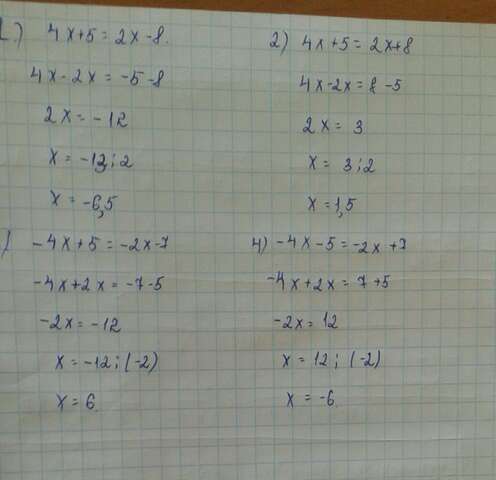 1) 4x+5=2x-8.
4x-2x=-5-8
2x=-12
x=-13:2
x=-6,5
2) 4x+5=2x+8
4x-2x=8-5
2x=3
x=3:2
x=1,5
) -4x+5=-2x-7
-4x+2x=-7-5
-2x=-12
x=-12:(-2)
x=6.
4) -4x-5=-2x+7
-4x+2x=7+5
-2x=12
x=12:(-2)
x=-6.